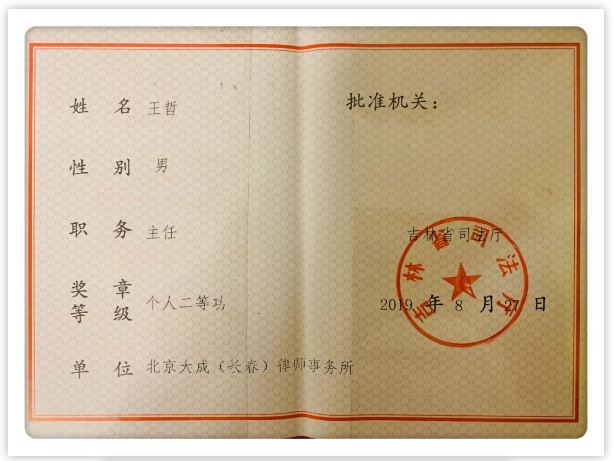 姓 名 王哲
性 别 男
职 务 主任
奖 章
等 级 个人二等功
单 位 北京大成（长春）律师事务所
批准机关：
吉林省司法厅
吉林省司法厅
2019 年 8 月 27 日